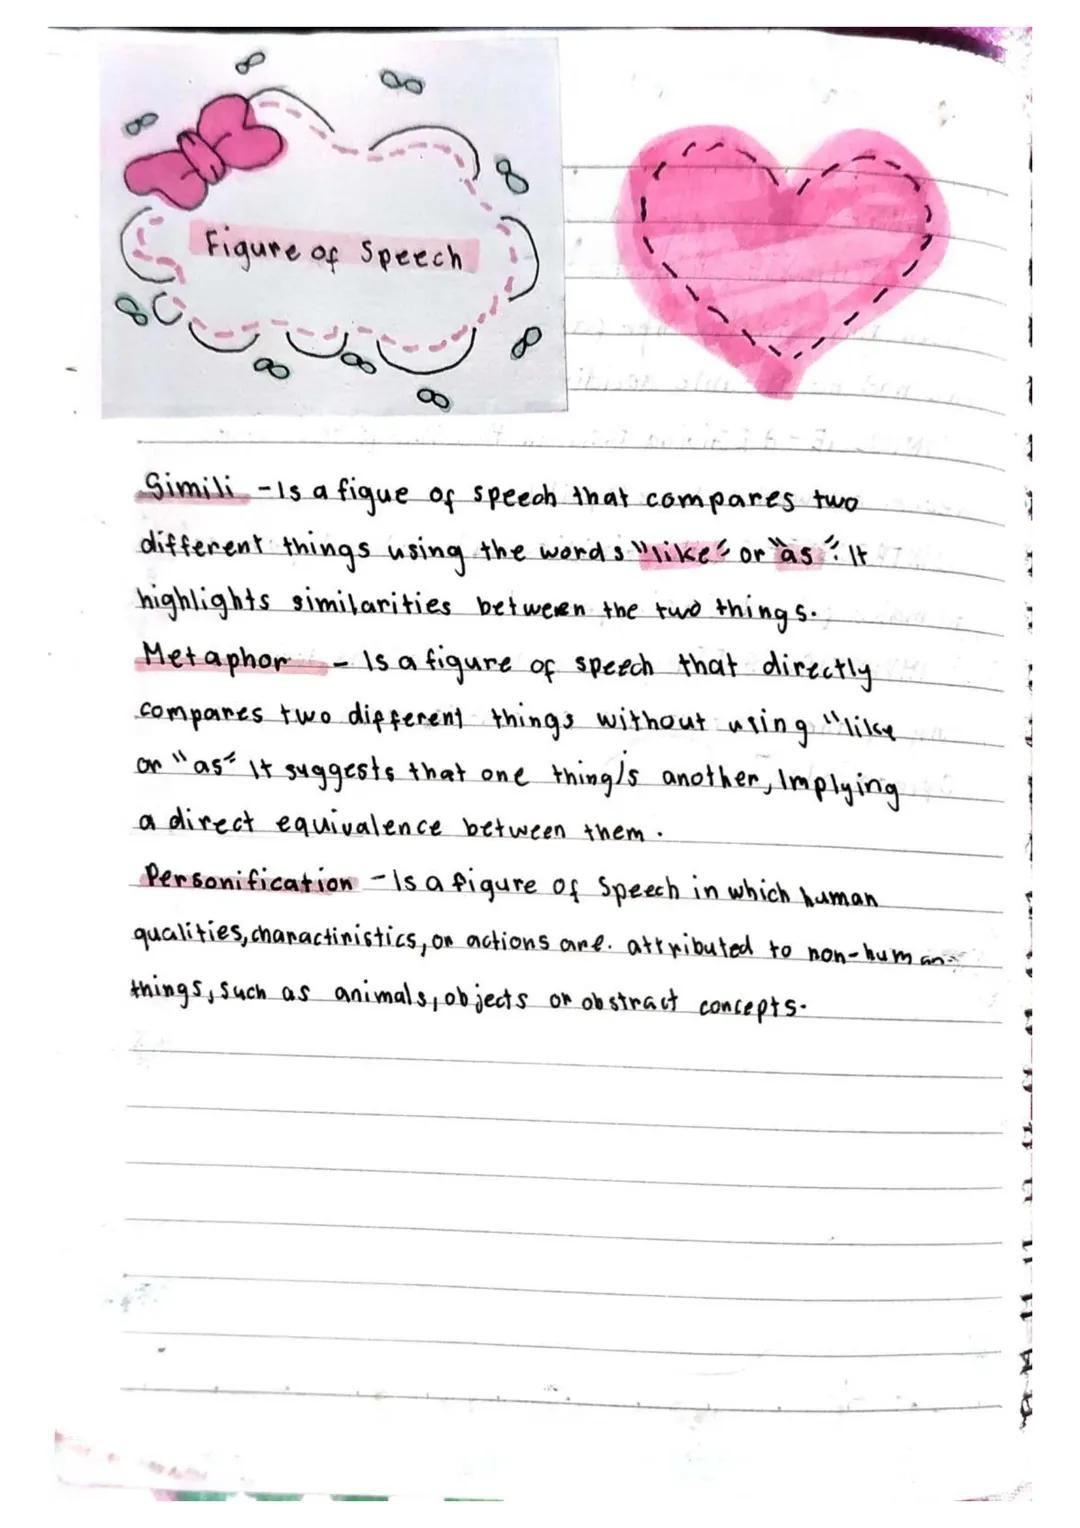 Figure of Speech
Simili - Is a figue of speech that compares two
different things using the words "like" or "as". It
highlights similarities between the two things.
Metaphor - Is a figure of speech that directly
compares two different things without using "like
or "as" It suggests that one thing is another, Implying
a direct equivalence between them.
Personification - Is a figure of Speech in which human
qualities, charactiristics, or actions are. attributed to non-human
things, such as animals, objects or obstract concepts.